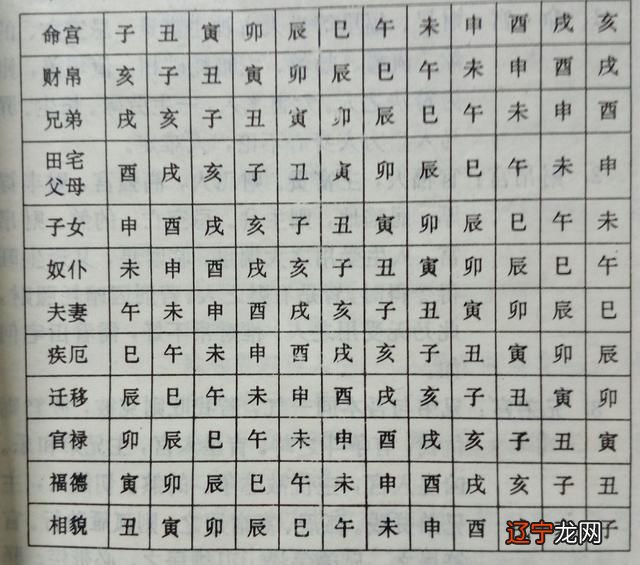 命宫 子 丑 寅 卯 辰 巳 午 未 申 酉 戌 亥
财帛 亥 子 丑 寅 卯 辰 巳 午 未 申 酉 戌
兄弟 戌 亥 子 丑 寅 卯 辰 巳 午 未 申 酉
田宅
父母 酉 戌 亥 子 丑 寅 卯 辰 巳 午 未 申
子女 申 酉 戌 亥 子 丑 寅 卯 辰 巳 午 未
奴仆 未 申 酉 戌 亥 子 丑 寅 卯 辰 巳 午
夫妻 午 未 申 酉 戌 亥 子 丑 寅 卯 辰 巳
疾厄 巳 午 未 申 酉 戌 亥 子 丑 寅 卯 辰
迁移 辰 巳 午 未 申 酉 戌 亥 子 丑 寅 卯
官禄 卯 辰 巳 午 未 申 酉 戌 亥 子 丑 寅
福德 寅 卯 辰 巳 午 未 申 酉 戌 亥 子 丑
相貌 丑 寅 卯 辰 巳 午 未 申 酉 子
辽宁龙网